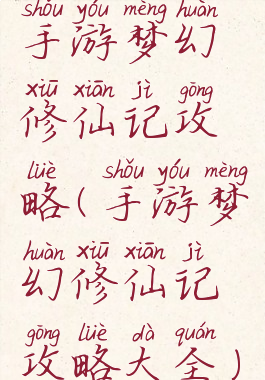 shǒu yóu mèng huàn
手游梦幻
xiū xiān jì gōng
修仙记攻
lüè shǒu yóu mèng
略(手游梦
huàn xiū xiān jì
幻修仙记
gōng lüè dà quán
攻略大全)